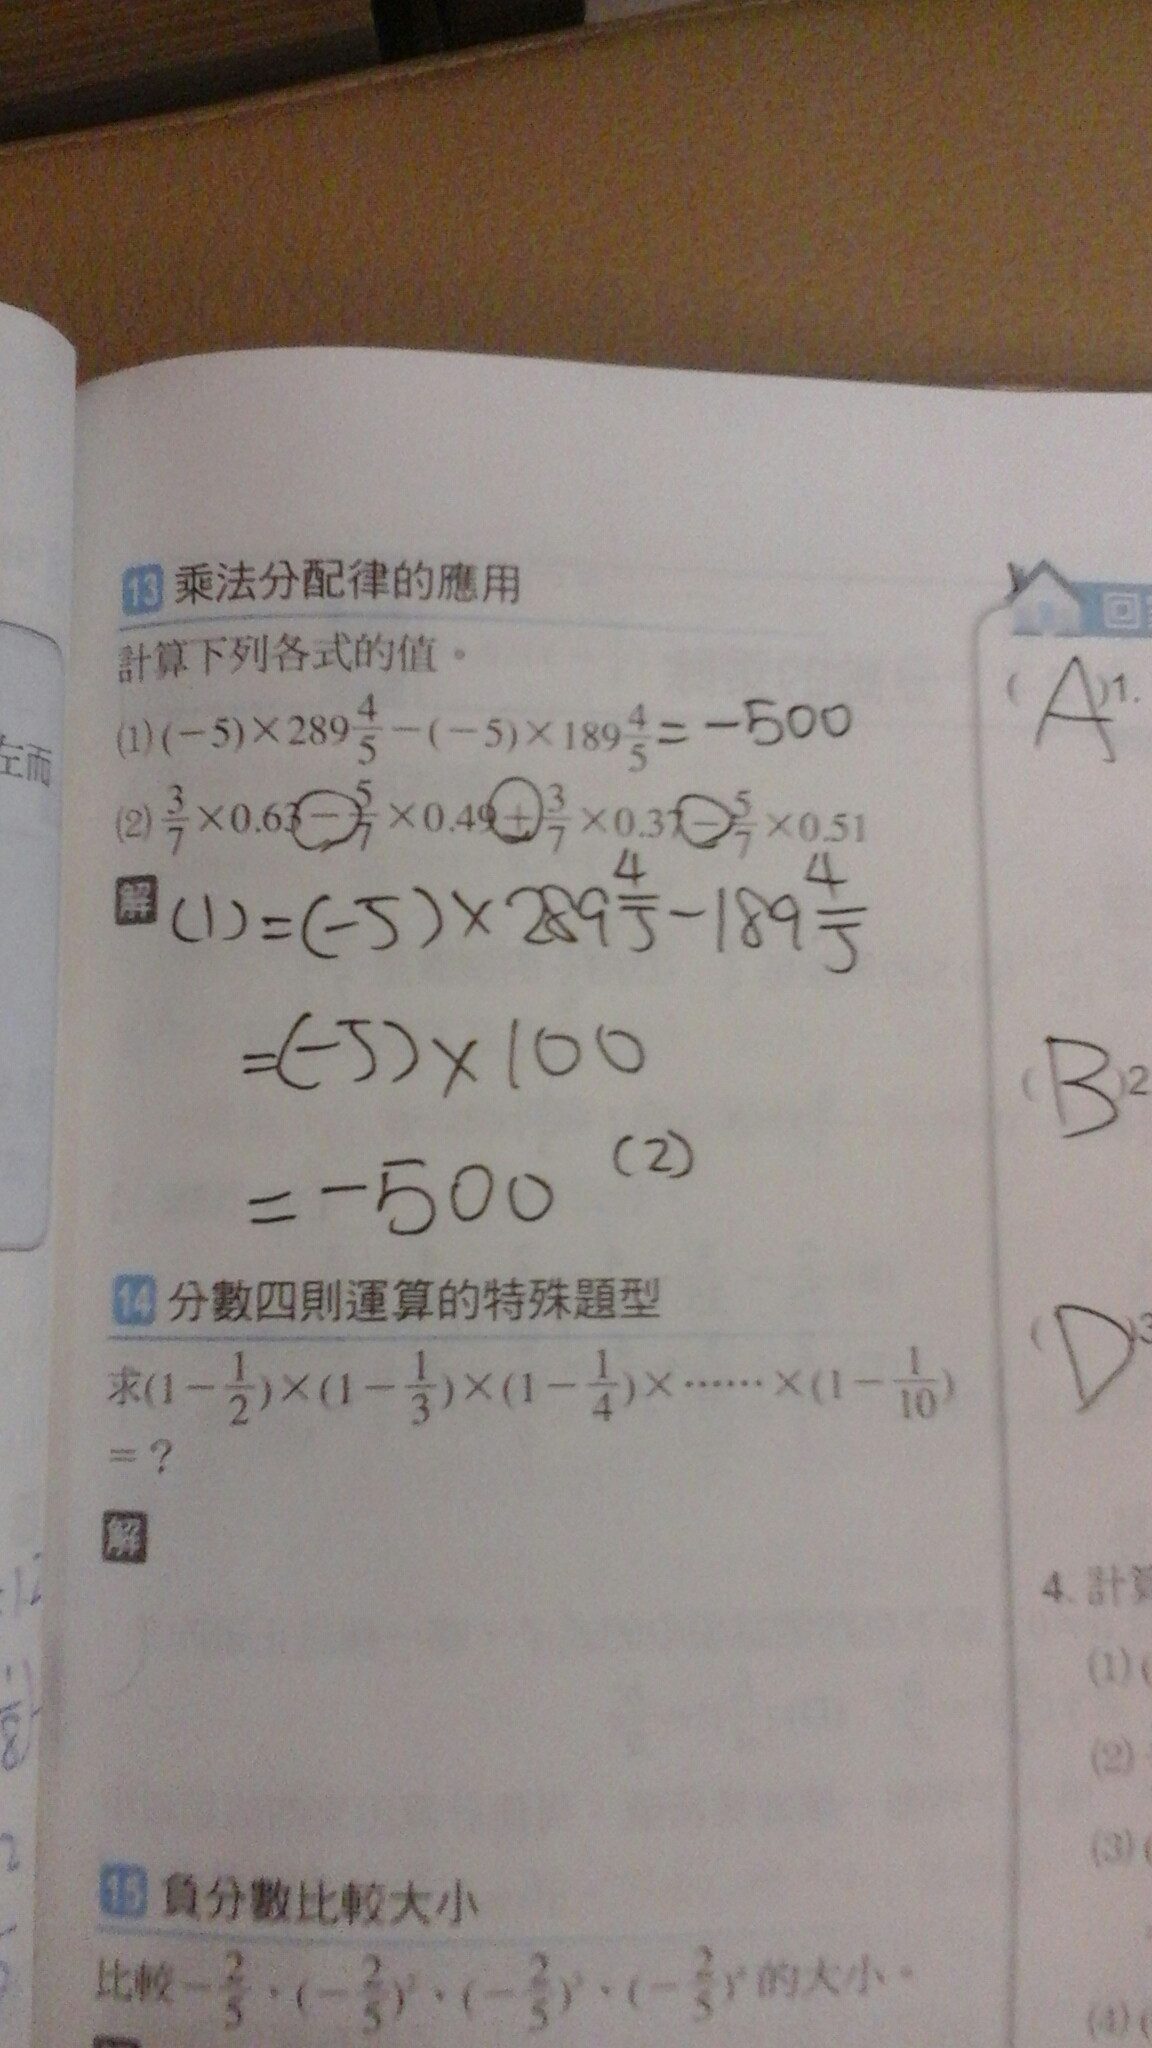 13 乘法分配律的應用
計算下列各式的值。
(1) (−5)×289 4/5 −(−5)×189 4/5 = −500
(2) 3/7 ×0.63 − 5/7 ×0.49 + 3/7 ×0.37 − 5/7 ×0.51
解 (1) = (−5) × 289 4/5 − 189 4/5
= (−5) × 100
= −500 (2)
14 分數四則運算的特殊題型
求(1− 1/2)×(1− 1/3)×(1− 1/4)×……×(1− 1/10)
=?
解
15 負分數比較大小
比較− 2/5、(− 2/5)²、(− 2/5)³、(− 2/5)⁴的大小。
左而
回
(A)1.
(B)2
(D)3
4. 計算
(1) (
(2)
(3) (
(4) (